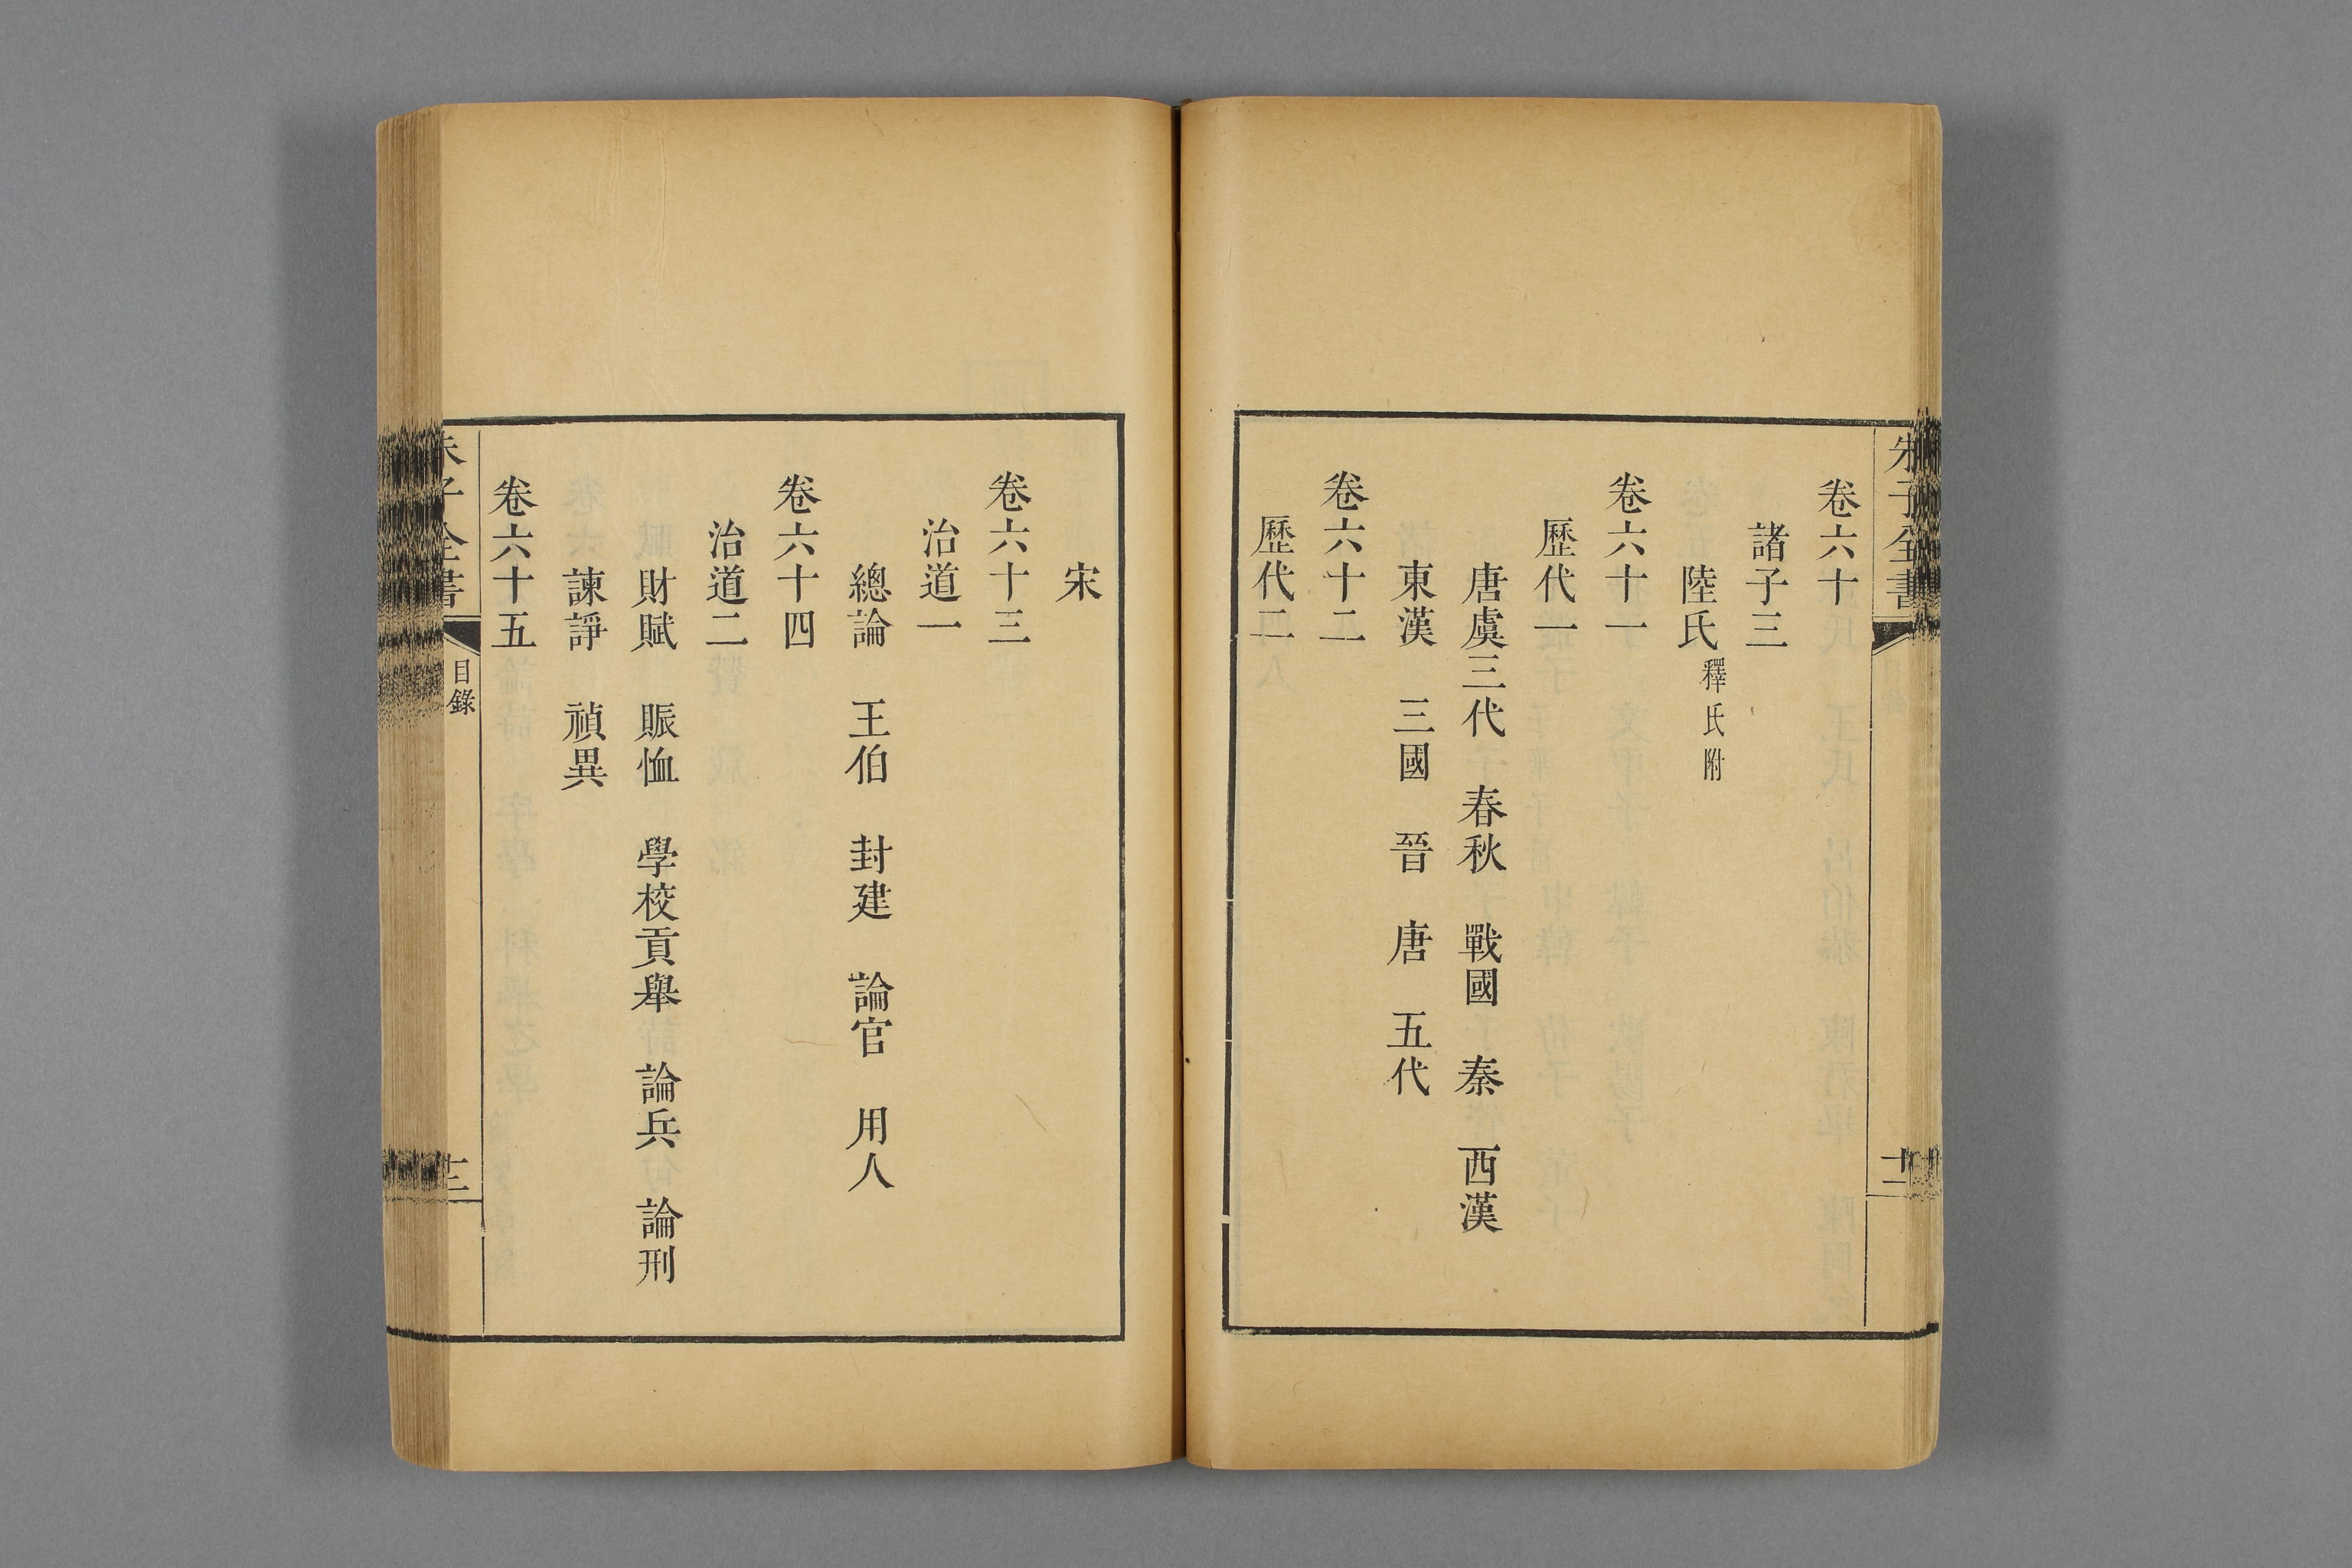 朱子全書
卷六十
諸子三
陸氏 釋氏附
卷六十一
歷代一
唐虞三代 春秋 戰國 秦 西漢
東漢 三國 晉 唐 五代
卷六十二
歷代二
宋
卷六十三
治道一
總論 王伯 封建 論官 用人
卷六十四
治道二
財賦 賑恤 學校貢舉 論兵 論刑
諫諍 禎異
卷六十五
朱子全書 目錄